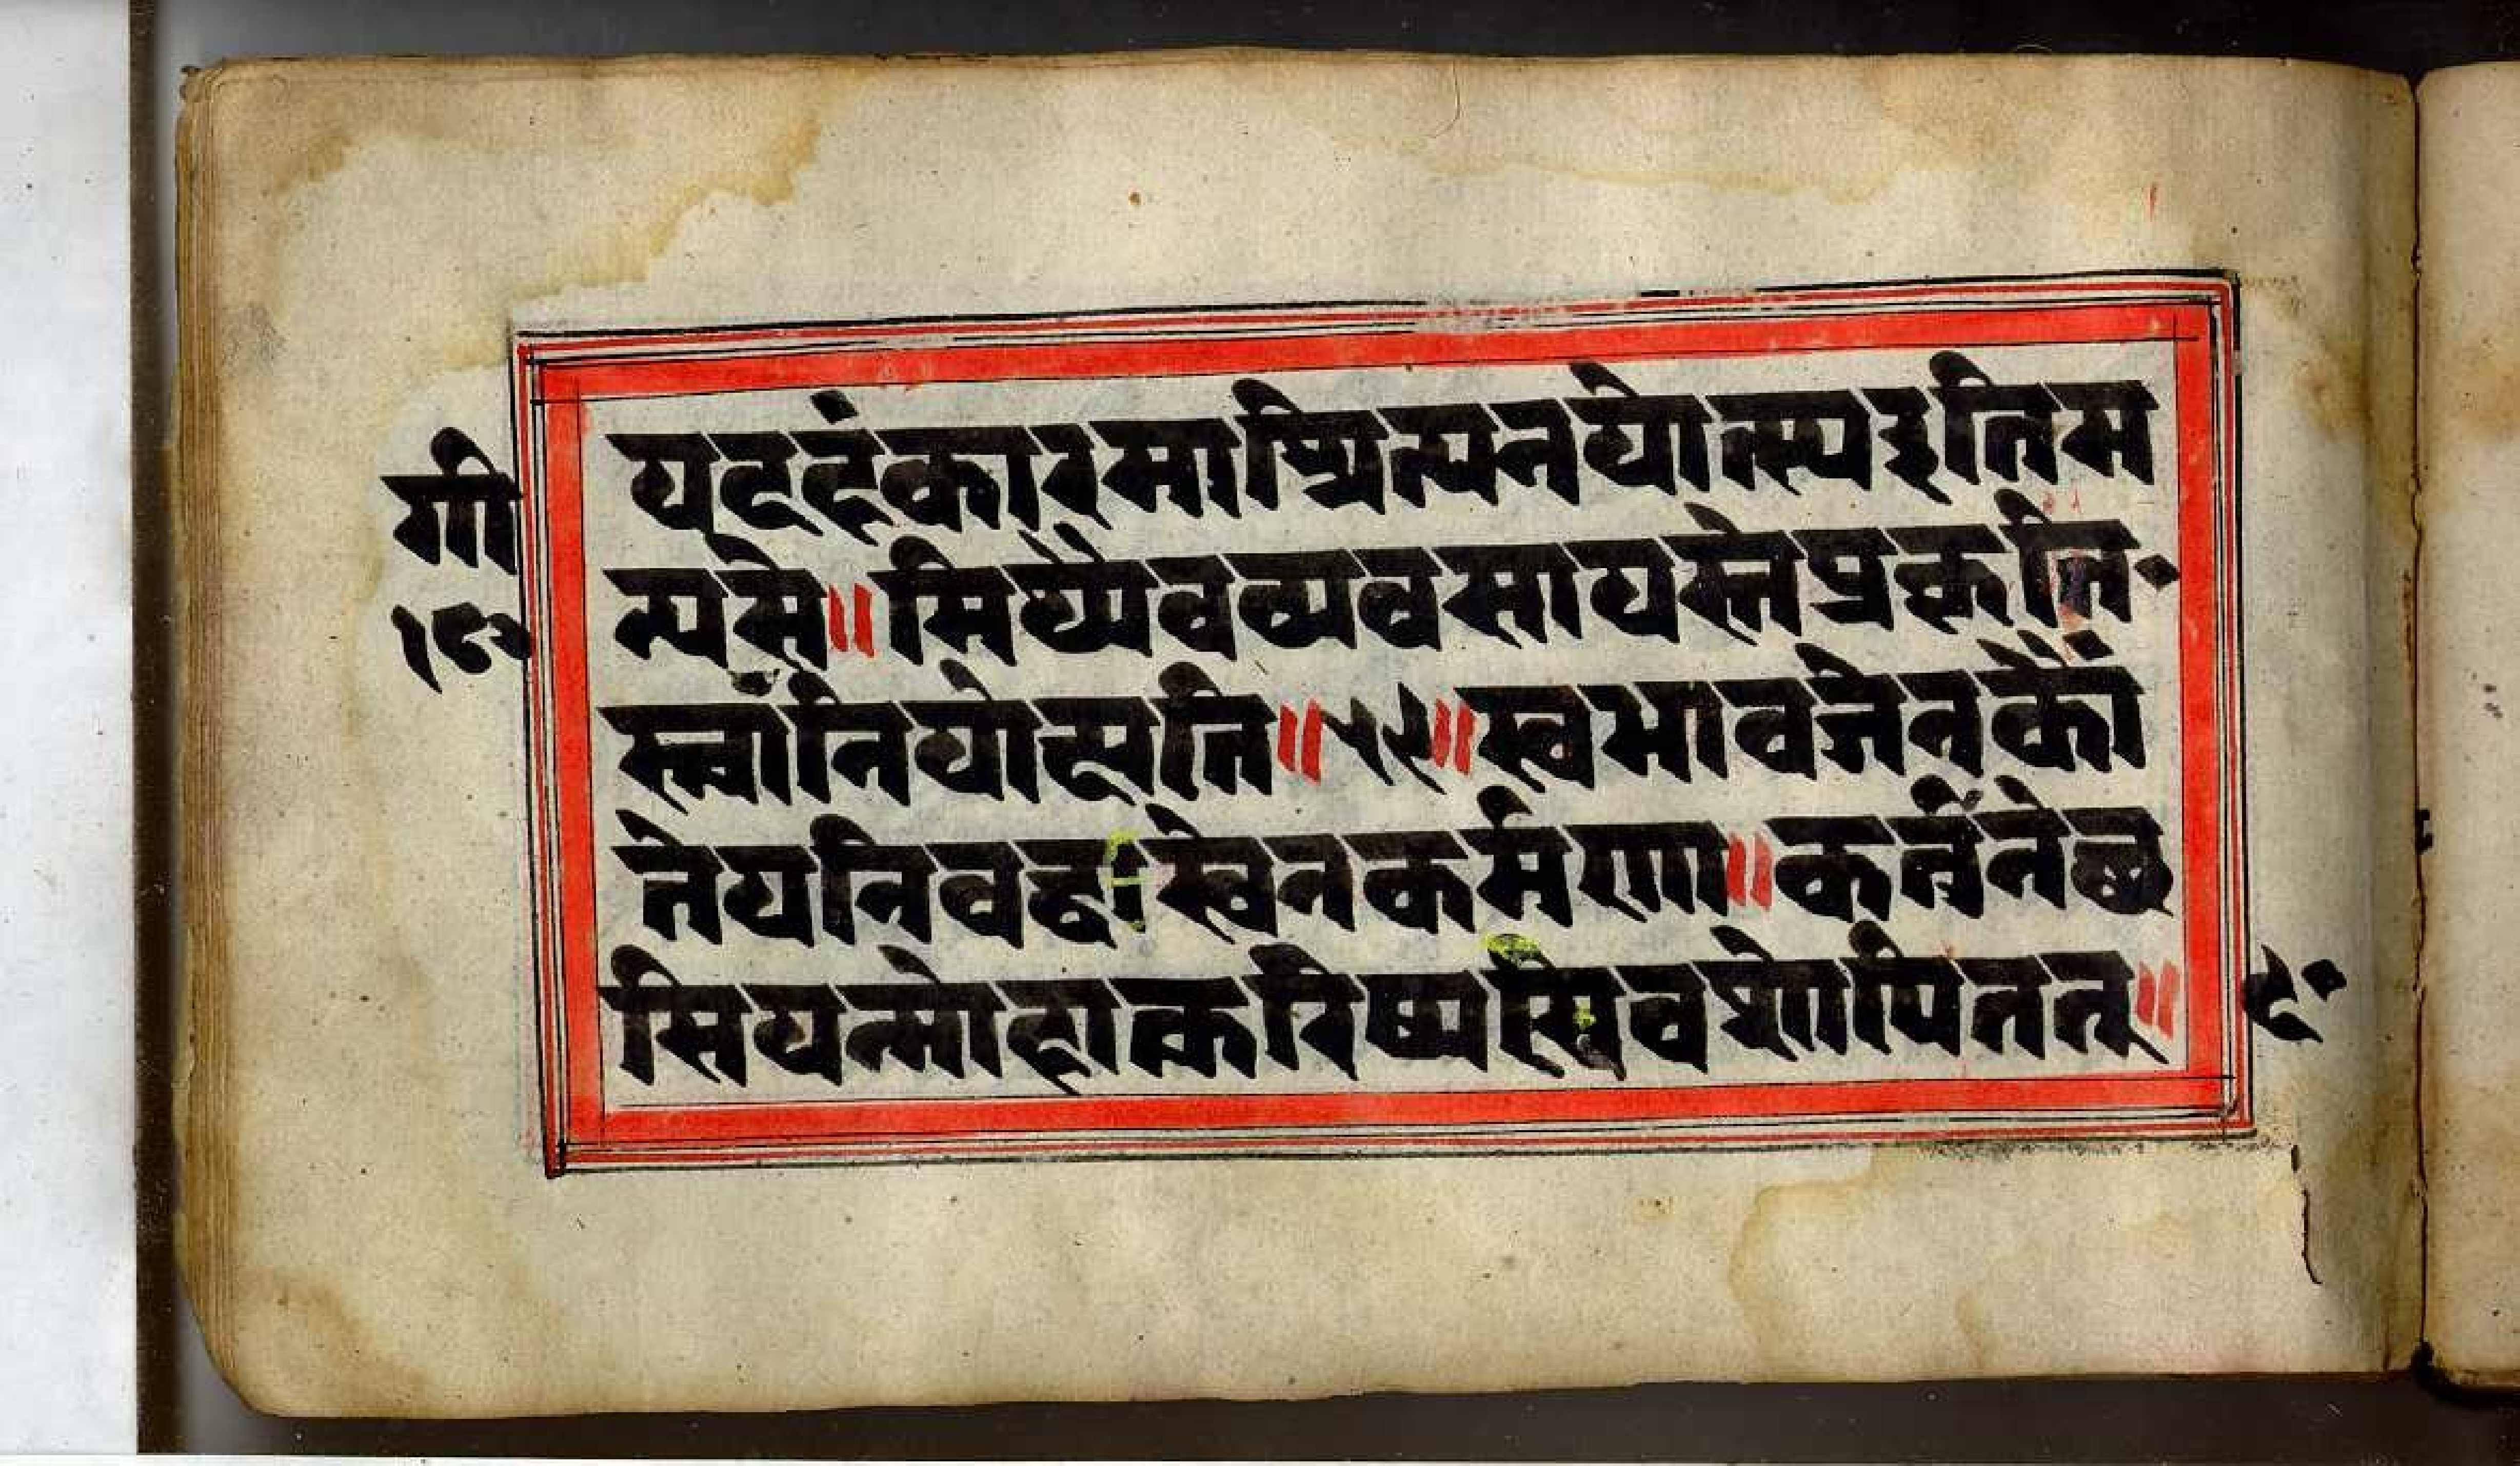 यदहंकारमाश्रित्यनयोत्स्यइतिम
न्यसे॥मिथ्यैवव्यवसायस्तेप्रकृति
स्त्वांनियोक्ष्यति॥५९॥स्वभावजेनकौं
तेयनिबद्धःस्वेनकर्मणा॥कर्तुंनेच्छ
सियन्मोहात्करिष्यस्यवशोपितत्॥
गी
१९०